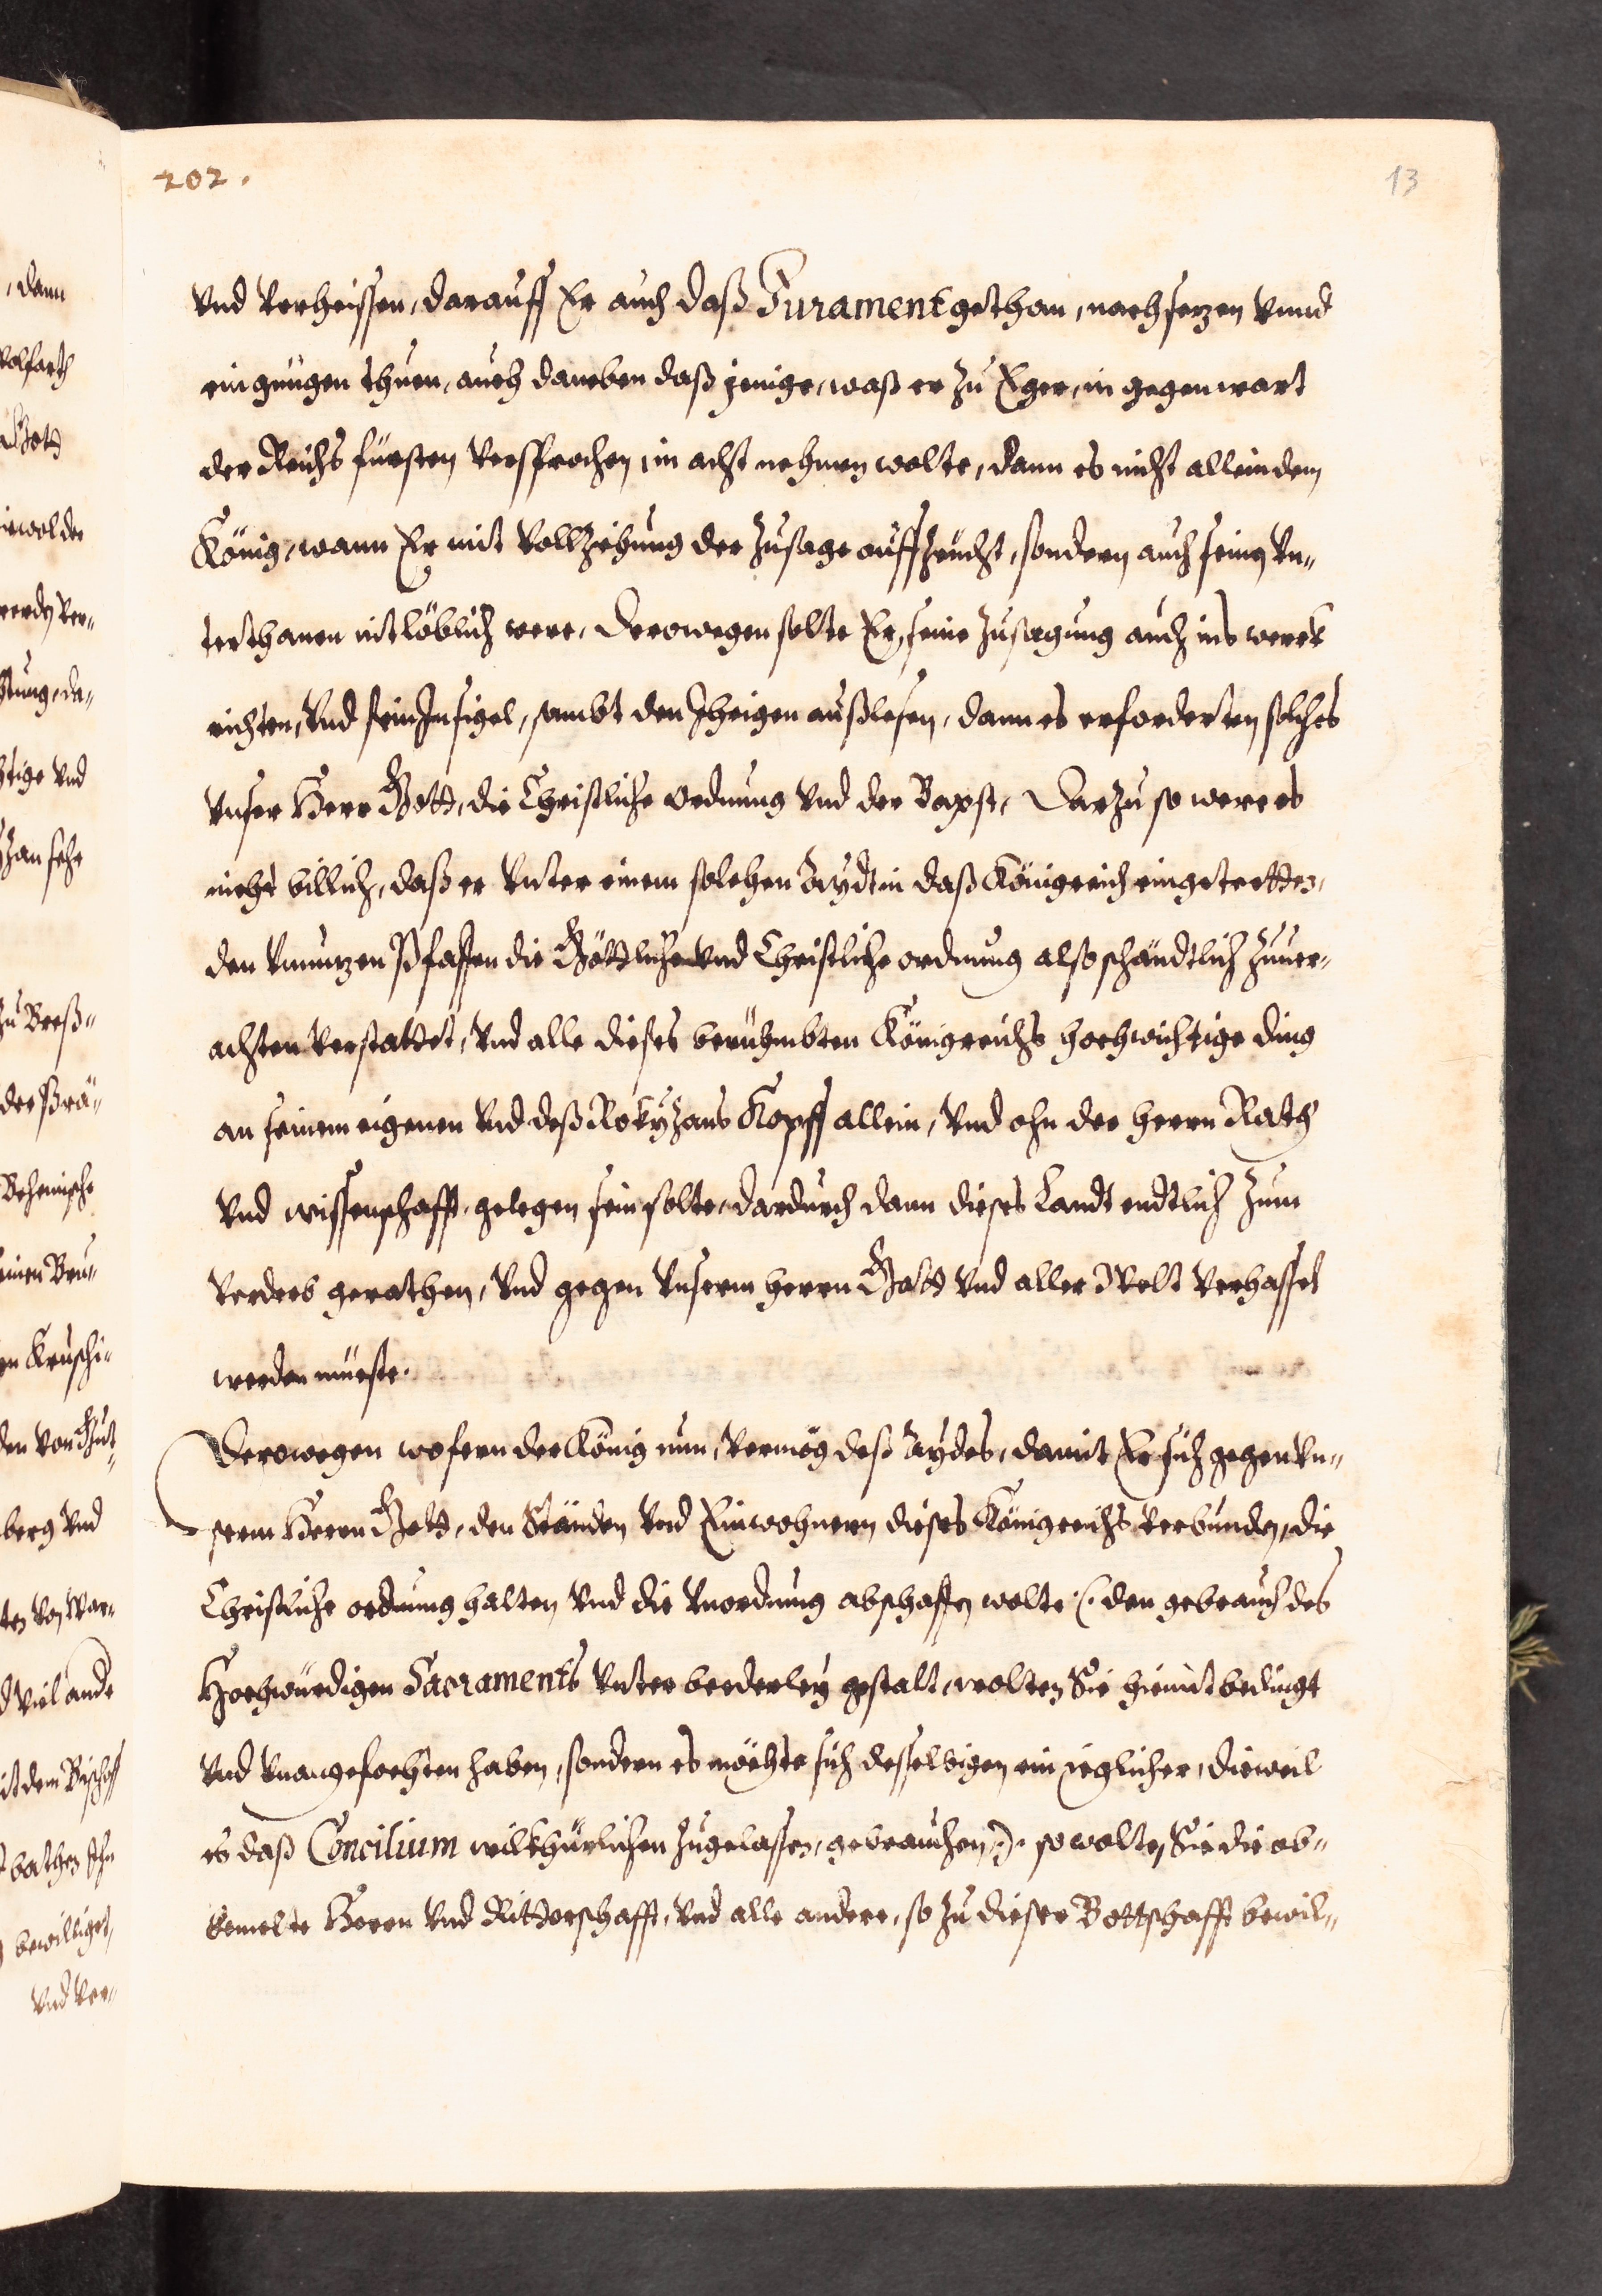 202.
13
vnd verheissen, darauff Er auch daß Jurament gethan, nachsezen vnnd
ein gnügen thuen, auch daneben daß jenige, waß er zu Eger, in gegenwart
der Reichs fürsten versprochen, in acht nehmen wolte, dann es nicht allein dem
König, wann Er mit vollziehung der zusage auffzeücht, sondern auch seinen vn„
terthanen nit löblich were, Derowegen solte Er, seine zusagung auch ins werck
richten, vnd sein Insigel, sambt den Ihrigen außlesen, dann es erforderten solches
vnser Herr Gott, die Christliche ordnung vnd der Bapst, Darzu so were es
nicht billich, daß er vnter einem solchen Aydt in daß Königreich eingetretten,
den vnnuzen Pfaffen die Göttliche vnd Christliche ordnung also schändtlich zuuer„
achten verstattet, vnd alle dieses berühmbten Königreichs hochwichtige ding
an seinem eigenen vnd deß Rokyzans Kopff allein, vnd ohn der herrn Rath
vnd wissenschafft, gelegen sein solte, dardurch dann dieses Landt endtlich zum
verderb gerathen, vnd gegen vnserm herrn Gott vnd aller Welt verhasset
werden müeste.
Derowegen wofern der König nun, vermög deß Aydes, damit Er sich gegen vn„
serm Herrn Gott, den Ständen vnd Einwohnern dieses Königreichs verbunden, die
Christliche ordnung halten vnd die vnordnung abschaffen wolte (: den gebrauch des
Hochwürdigen Sacraments vnter beederley gestalt, wolten Sie hiemit bedingt
vnd vnangefochten haben, sondern es möchte sich desselbigen ein ieglicher, dieweil
es daß Concilium wilkhürlichen zugelassen, gebrauchen :) so wolten Sie die ob„
bemelte Herrn vnd Ritterschafft, vnd alle andere, so zu dieser Bottschafft bewil„